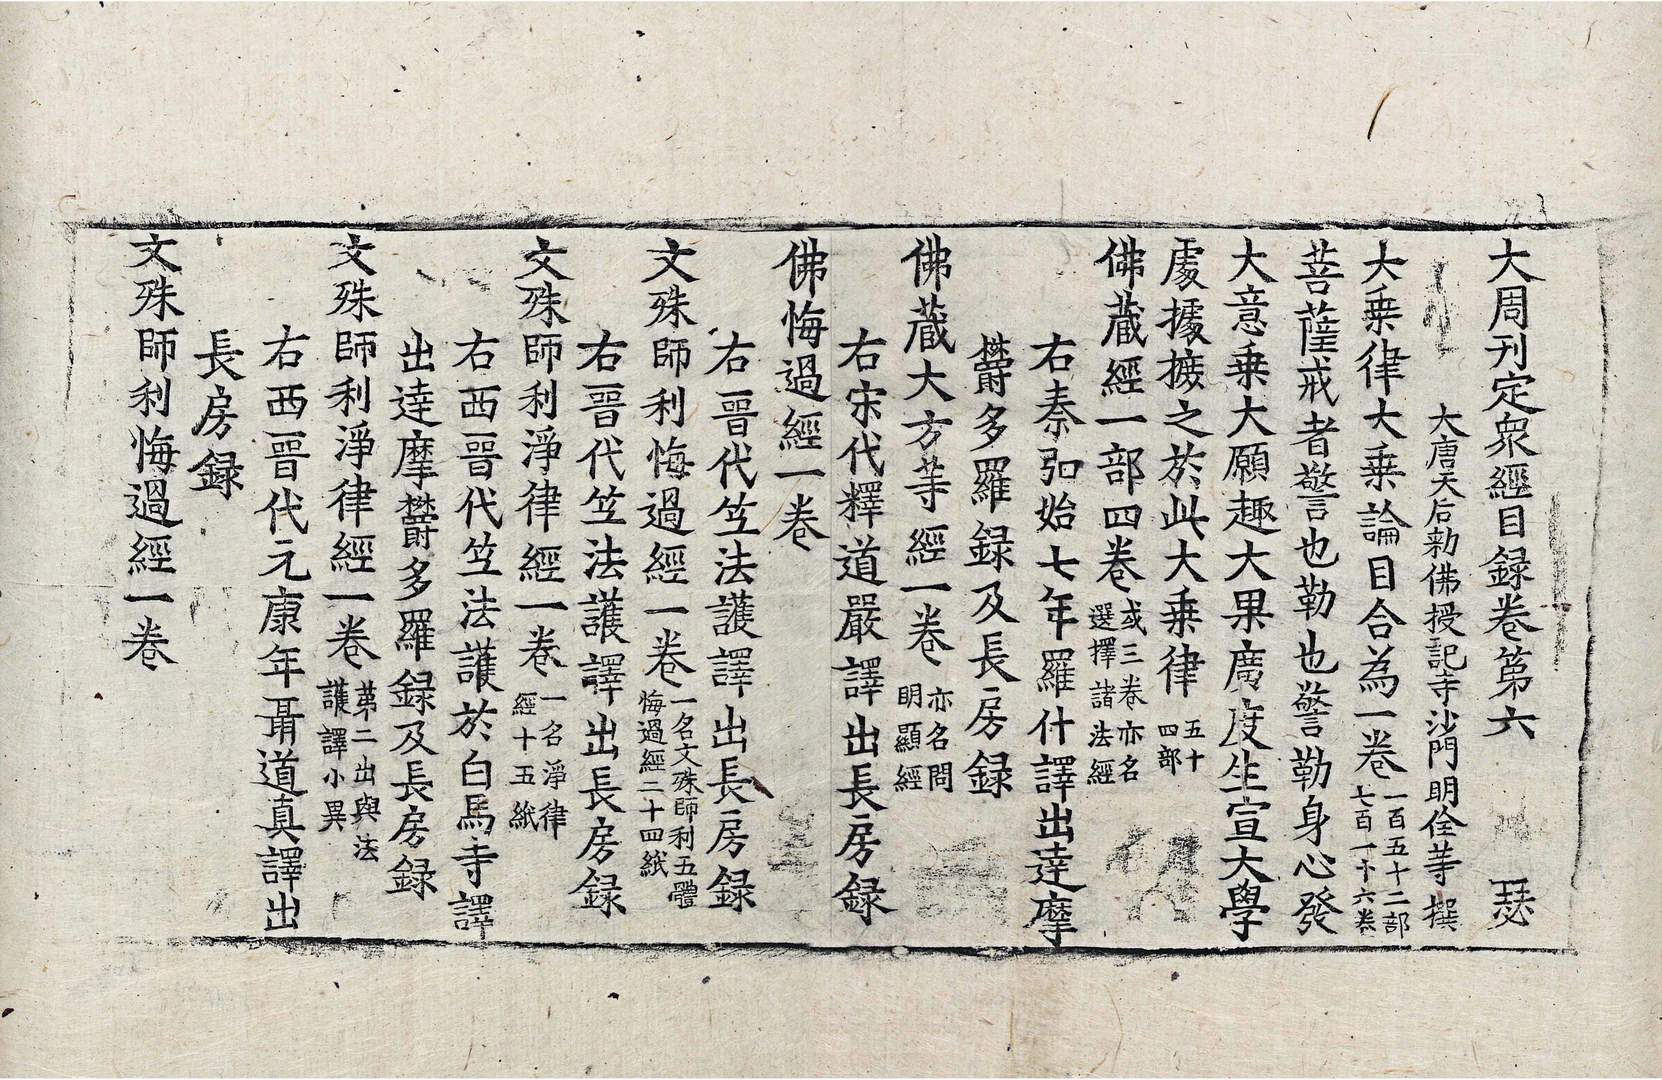 大周刊定衆經目録卷第六 瑟
大唐天后勑佛授記寺沙門明佺䓁撰
大乗律大乗論目合為一卷 一百五十二部 七百一十六卷
菩薩戒者警也勒也警勒身心發
大意乗大願趣大果廣度生宣大學
處據摭之於此大乗律 五十 四部
佛蔵經一部四卷 或三卷亦名 選擇諸法經
右秦弘始七年羅什譯出達摩
欝多羅録及長房録
佛蔵大方䓁經一卷 亦名問 明顯經
右宋代釋道嚴譯出長房録
佛悔過經一卷
右晉代竺法護譯出長房録
文殊師利悔過經一卷 一名文殊師利五體 悔過經二十四紙
右晉代竺法護譯出長房録
文殊師利淨律經一卷 一名淨律 經十五紙
右西晉代竺法護於白馬寺譯
出達摩欝多羅録及長房録
文殊師利淨律經一卷 苐二出與法 護譯小異
右西晉代元康年聶道真譯出
長房録
文殊師利悔過經一卷